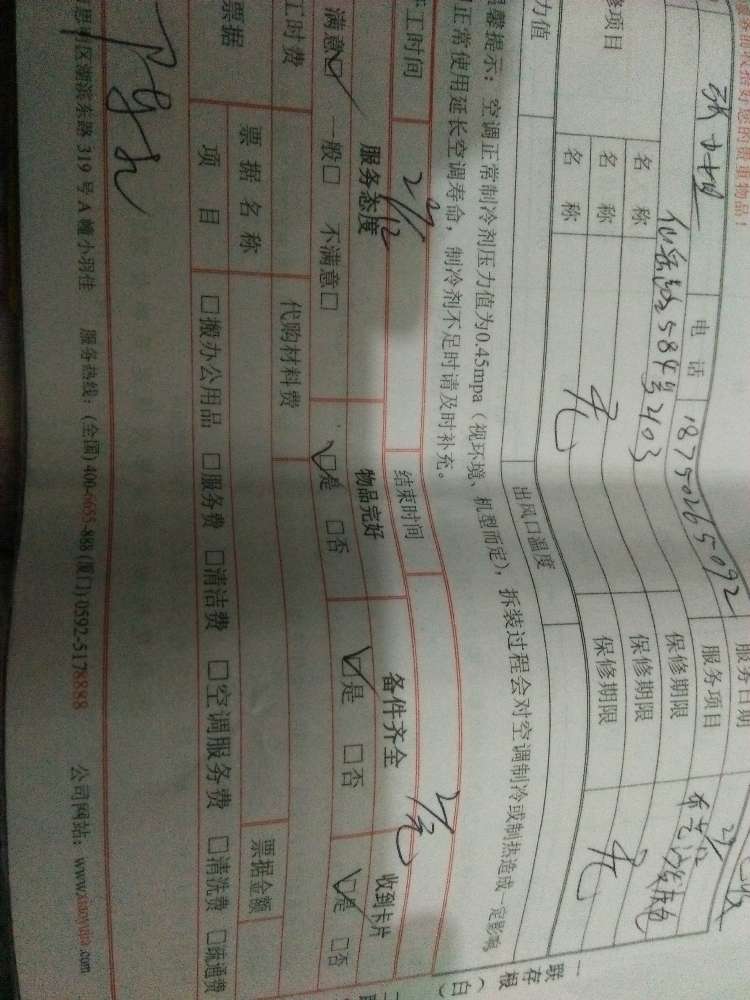 服务日期
电话 18750265092 服务项目
名称 仙岳路584号203 保修期限
名称 保修期限
名称 无 保修期限 无
修项目
力值 出风口温度
馨提示：空调正常制冷剂压力值为0.45mpa（视环境、机型而定），拆装过程会对空调制冷或制热造成一定影响
正常使用延长空调寿命，制冷剂不足时请及时补充。
工时间 结束时间
服务态度 物品完好 备件齐全 收到卡片
满意□ 一般□ 不满意□ □是 □否 □是 □否 □是 □否
工时费 代购材料费
票据 票据名称 票据金额
项目 □搬办公用品 □服务费 □清洁费 □空调服务费 □清洗费 □疏通费
明区湖滨东路 319 号 A 幢小羽佳 服务热线：(全国) 400-6655-888 (厦门) 0592-5178888 公司网站：www.xiaoyujia.com
一联存根（白）